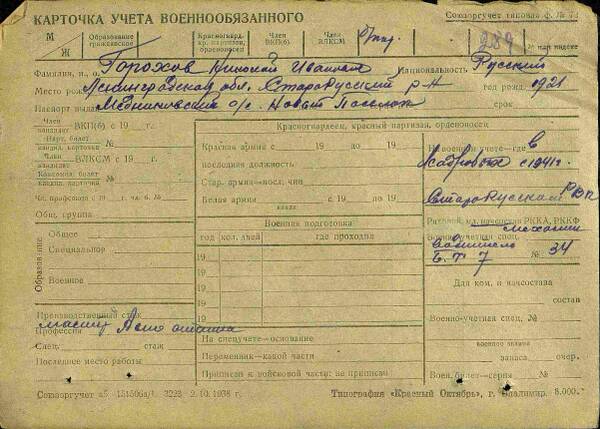 КАРТОЧКА УЧЕТА ВОЕННООБЯЗАННОГО
Союзоргучет типовая ф. № 72
М
Ж
Образование гражданское
Красногвард., кр. партизан, орденоносец
Член ВКП(б)
Член ВЛКСМ
289
№ или индекс
Фамилия, и., о. Горохов Николай Иванович Национальность Русский
Место рожд. Ленинградская обл. Старорусский р-н год рожд. 1921
Паспорт выдан Медниковский с/с. Новый Поселок
Член кандидат ВКП(б) с 19 г.
Парт. билет кандид. карточка №
Член кандидат ВЛКСМ с 19 г.
Комсомол. билет кандид. карточка №
Чл. профсоюза с 19 г. чл. б. №
Общ. группа
Красногвардеец, красный партизан, орденоносец
Красная армия с 19 по 19
последняя должность
Стар. армия—посл. чин
Белая армия с 19 по 19
На военном учете—где в
Хабровых с 1941 г.
Старорусском РВК
Рядовой, мл. начсостав РККА, РККФ
механик
Военно-учетная спец. водитель
Б. Т 7 № 34
Образование
Общее
Специальное
Военное
Военная подготовка
год кол. дней где проходил
19
19
19
19
19
Для ком. и начсостава
состав
Военно-учетная спец. №
военное звание
запаса очер.
Воен. билет—серия №
Производственный стаж
Профессия
Спец. стаж
Последнее место работы
На спецучете—основание
Переменник—какой части
Приписан к войсковой части: не приписан
Союзоргучет 2.10.1938 г.
Типография «Красный Октябрь», г. Владимир. 8.000.